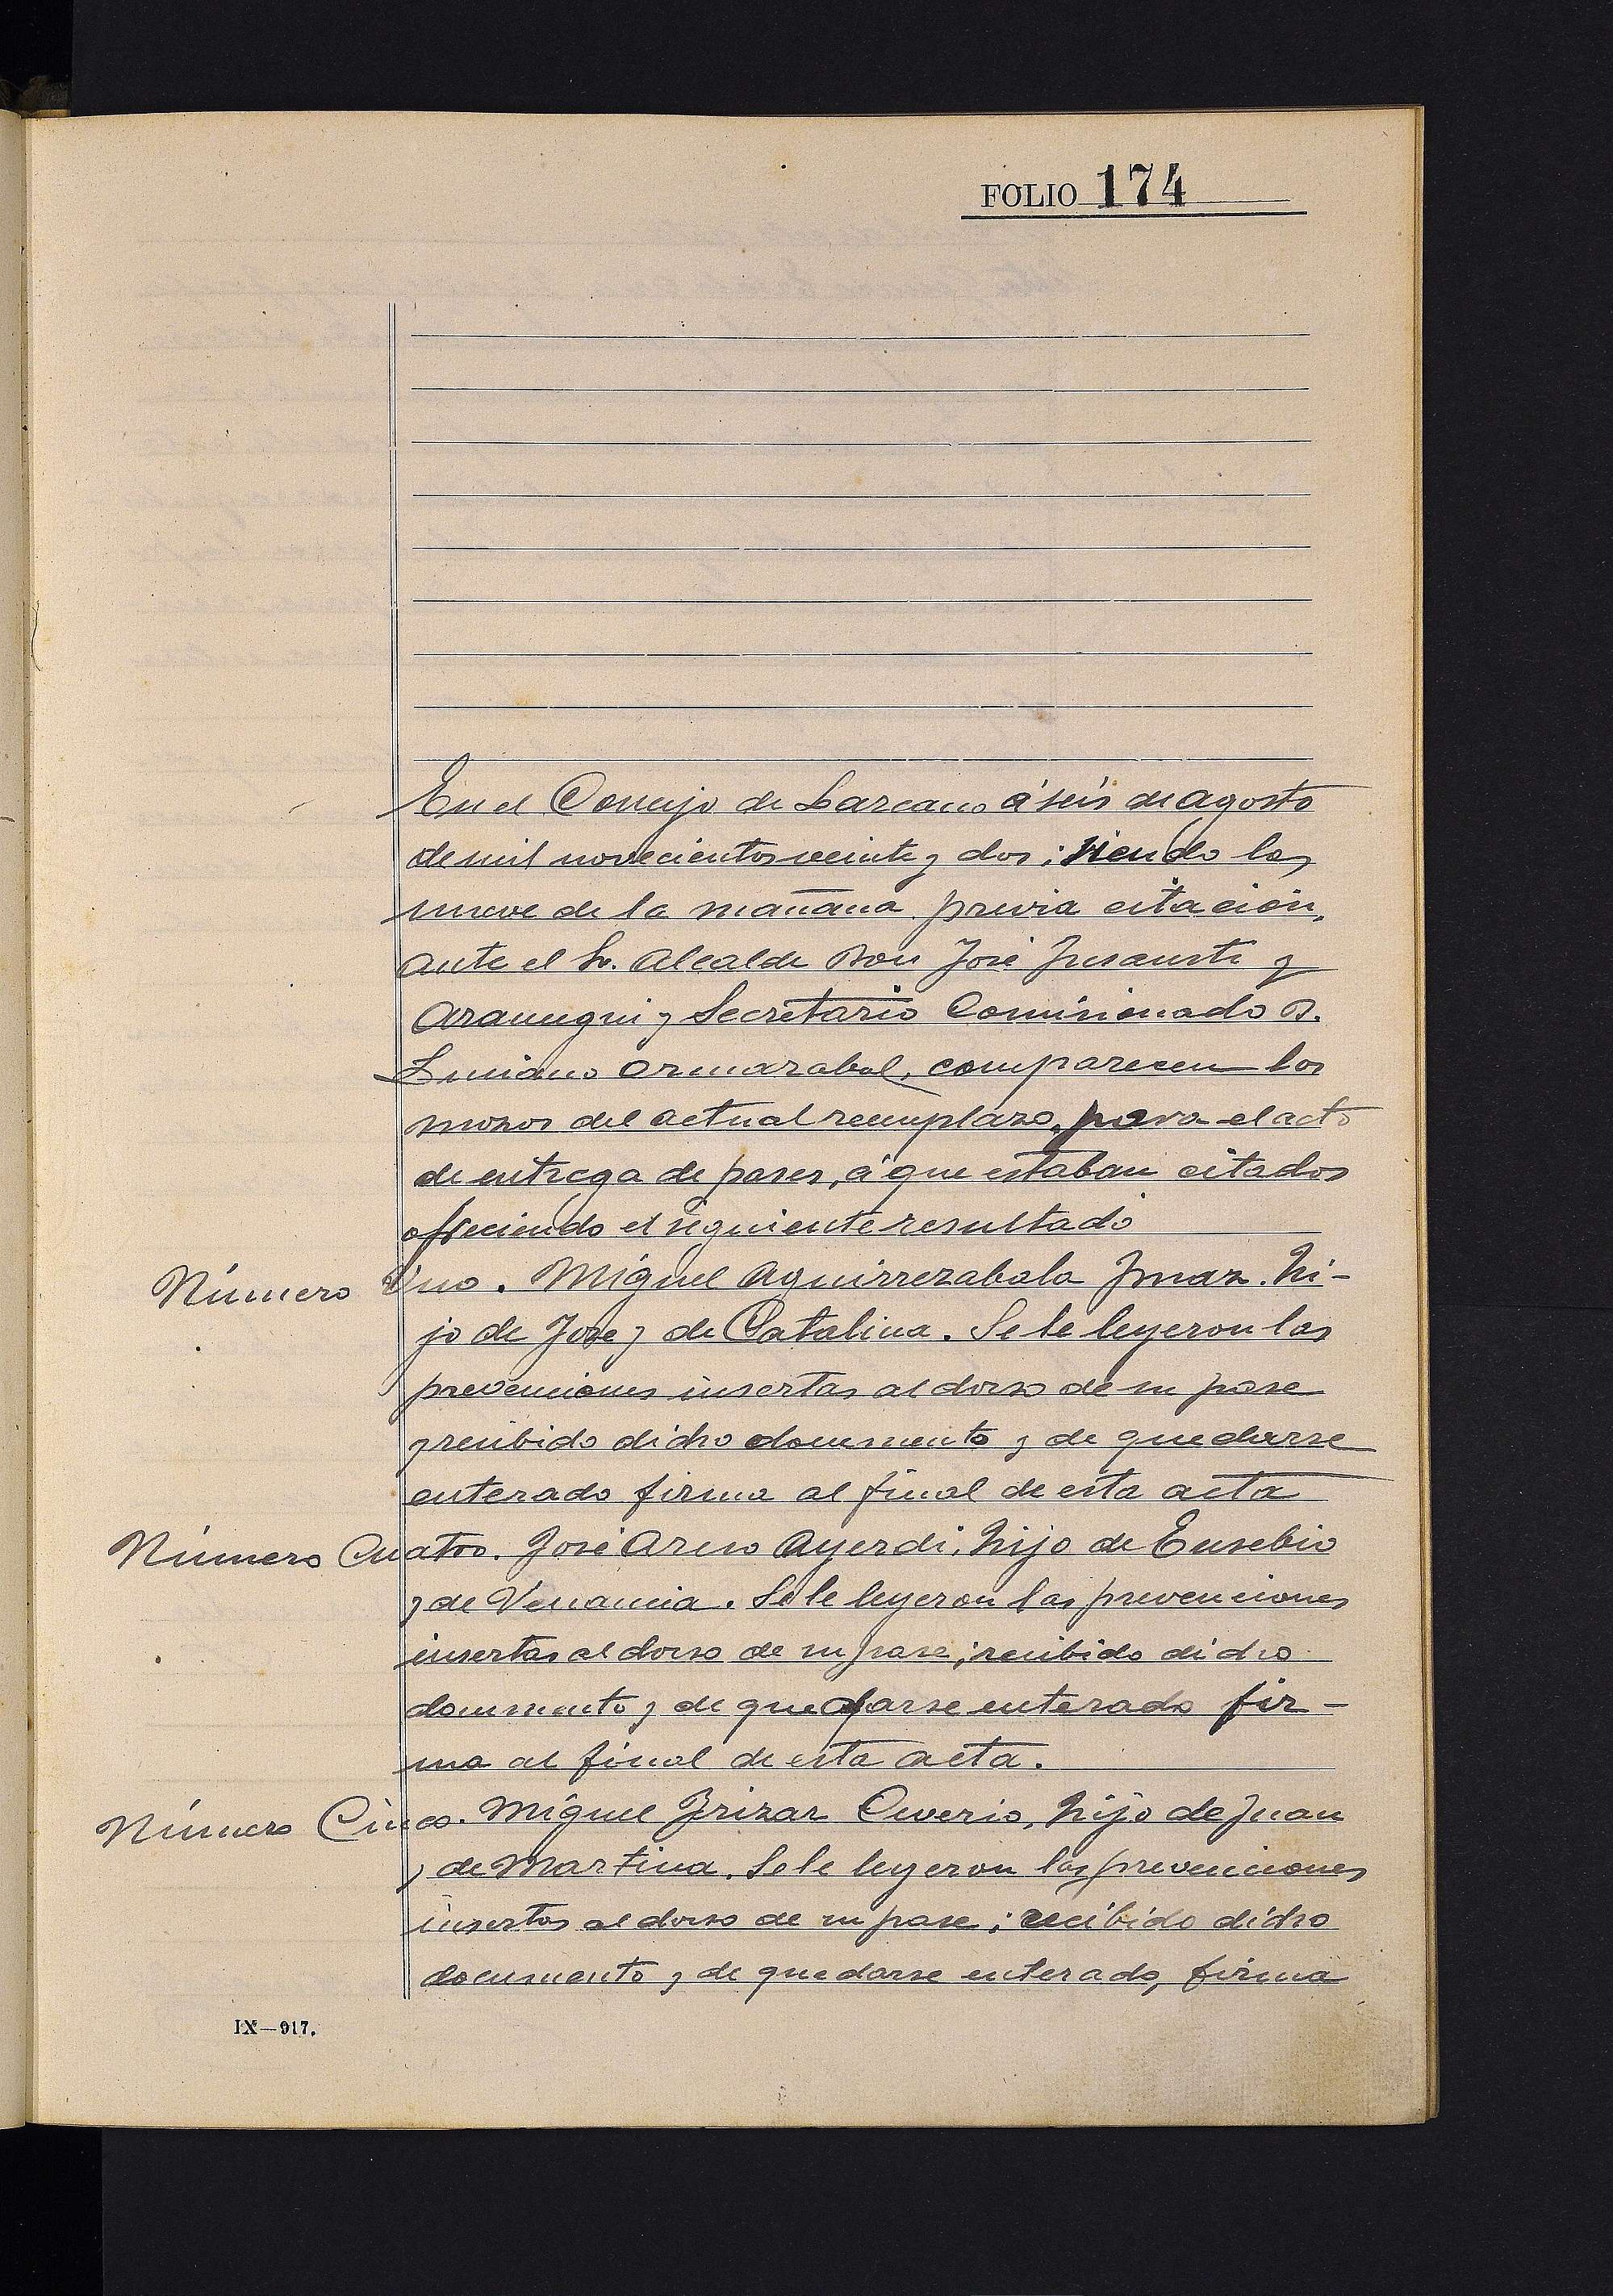 FOLIO 174
En el Concejo de Lazcano á seis de agosto
de mil novecientos veinte y dos; siendo las
nueve de la mañana previa citación,
ante el Sr. Alcalde Don José Insausti y
Aramegui y Secretario Comisionado D.
Luciano Ormazabal, comparecen los
mozos del actual reemplazo, para el acto
de entrega de pases, á que estaban citados
ofreciendo el siguiente resultado
Número Uno. Miguel Aguirrezabala Imaz. hi-
jo de Jose y de Catalina. Se le leyeron las
prevenciones insertas al dorso de su pase
y recibido dicho documento y de quedarse
enterado firma al final de esta acta
Número Cuatro. José Ayerdi, hijo de Eusebio
y de Venancia. Se le leyeron las prevenciones
insertas al dorso de su pase; recibido dicho
documento y de quedarse enterado fir-
ma al final de esta acta.
Número Cinco. Miguel Irizar, hijo de Juan
y de Martina. Se le leyeron las prevenciones
insertas al dorso de su pase; recibido dicho
documento y de quedarse enterado, firma
IX—917.